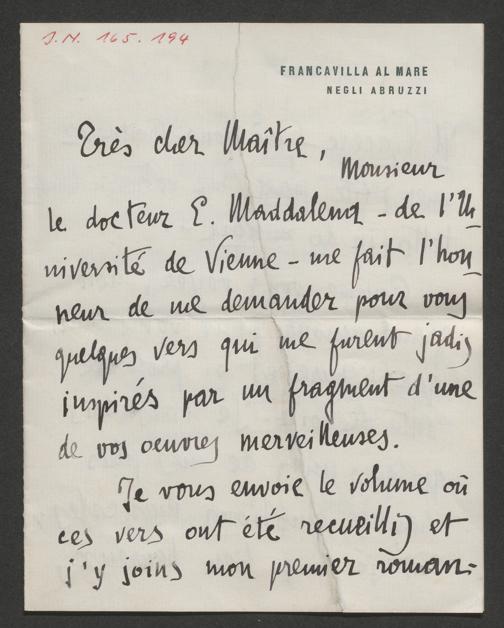 J.N. 165.194
FRANCAVILLA AL MARE
NEGLI ABRUZZI
Très cher Maître,
Monsieur
le docteur E. Maddalena - de l'U
niversité de Vienne - me fait l'hon
neur de me demander pour vous
quelques vers qui me furent jadis
inspirés par un fragment d'une
de vos oeuvres merveilleuses.
Je vous envoie le volume où
ces vers ont été recueillis et
j'y joins mon premier roman-